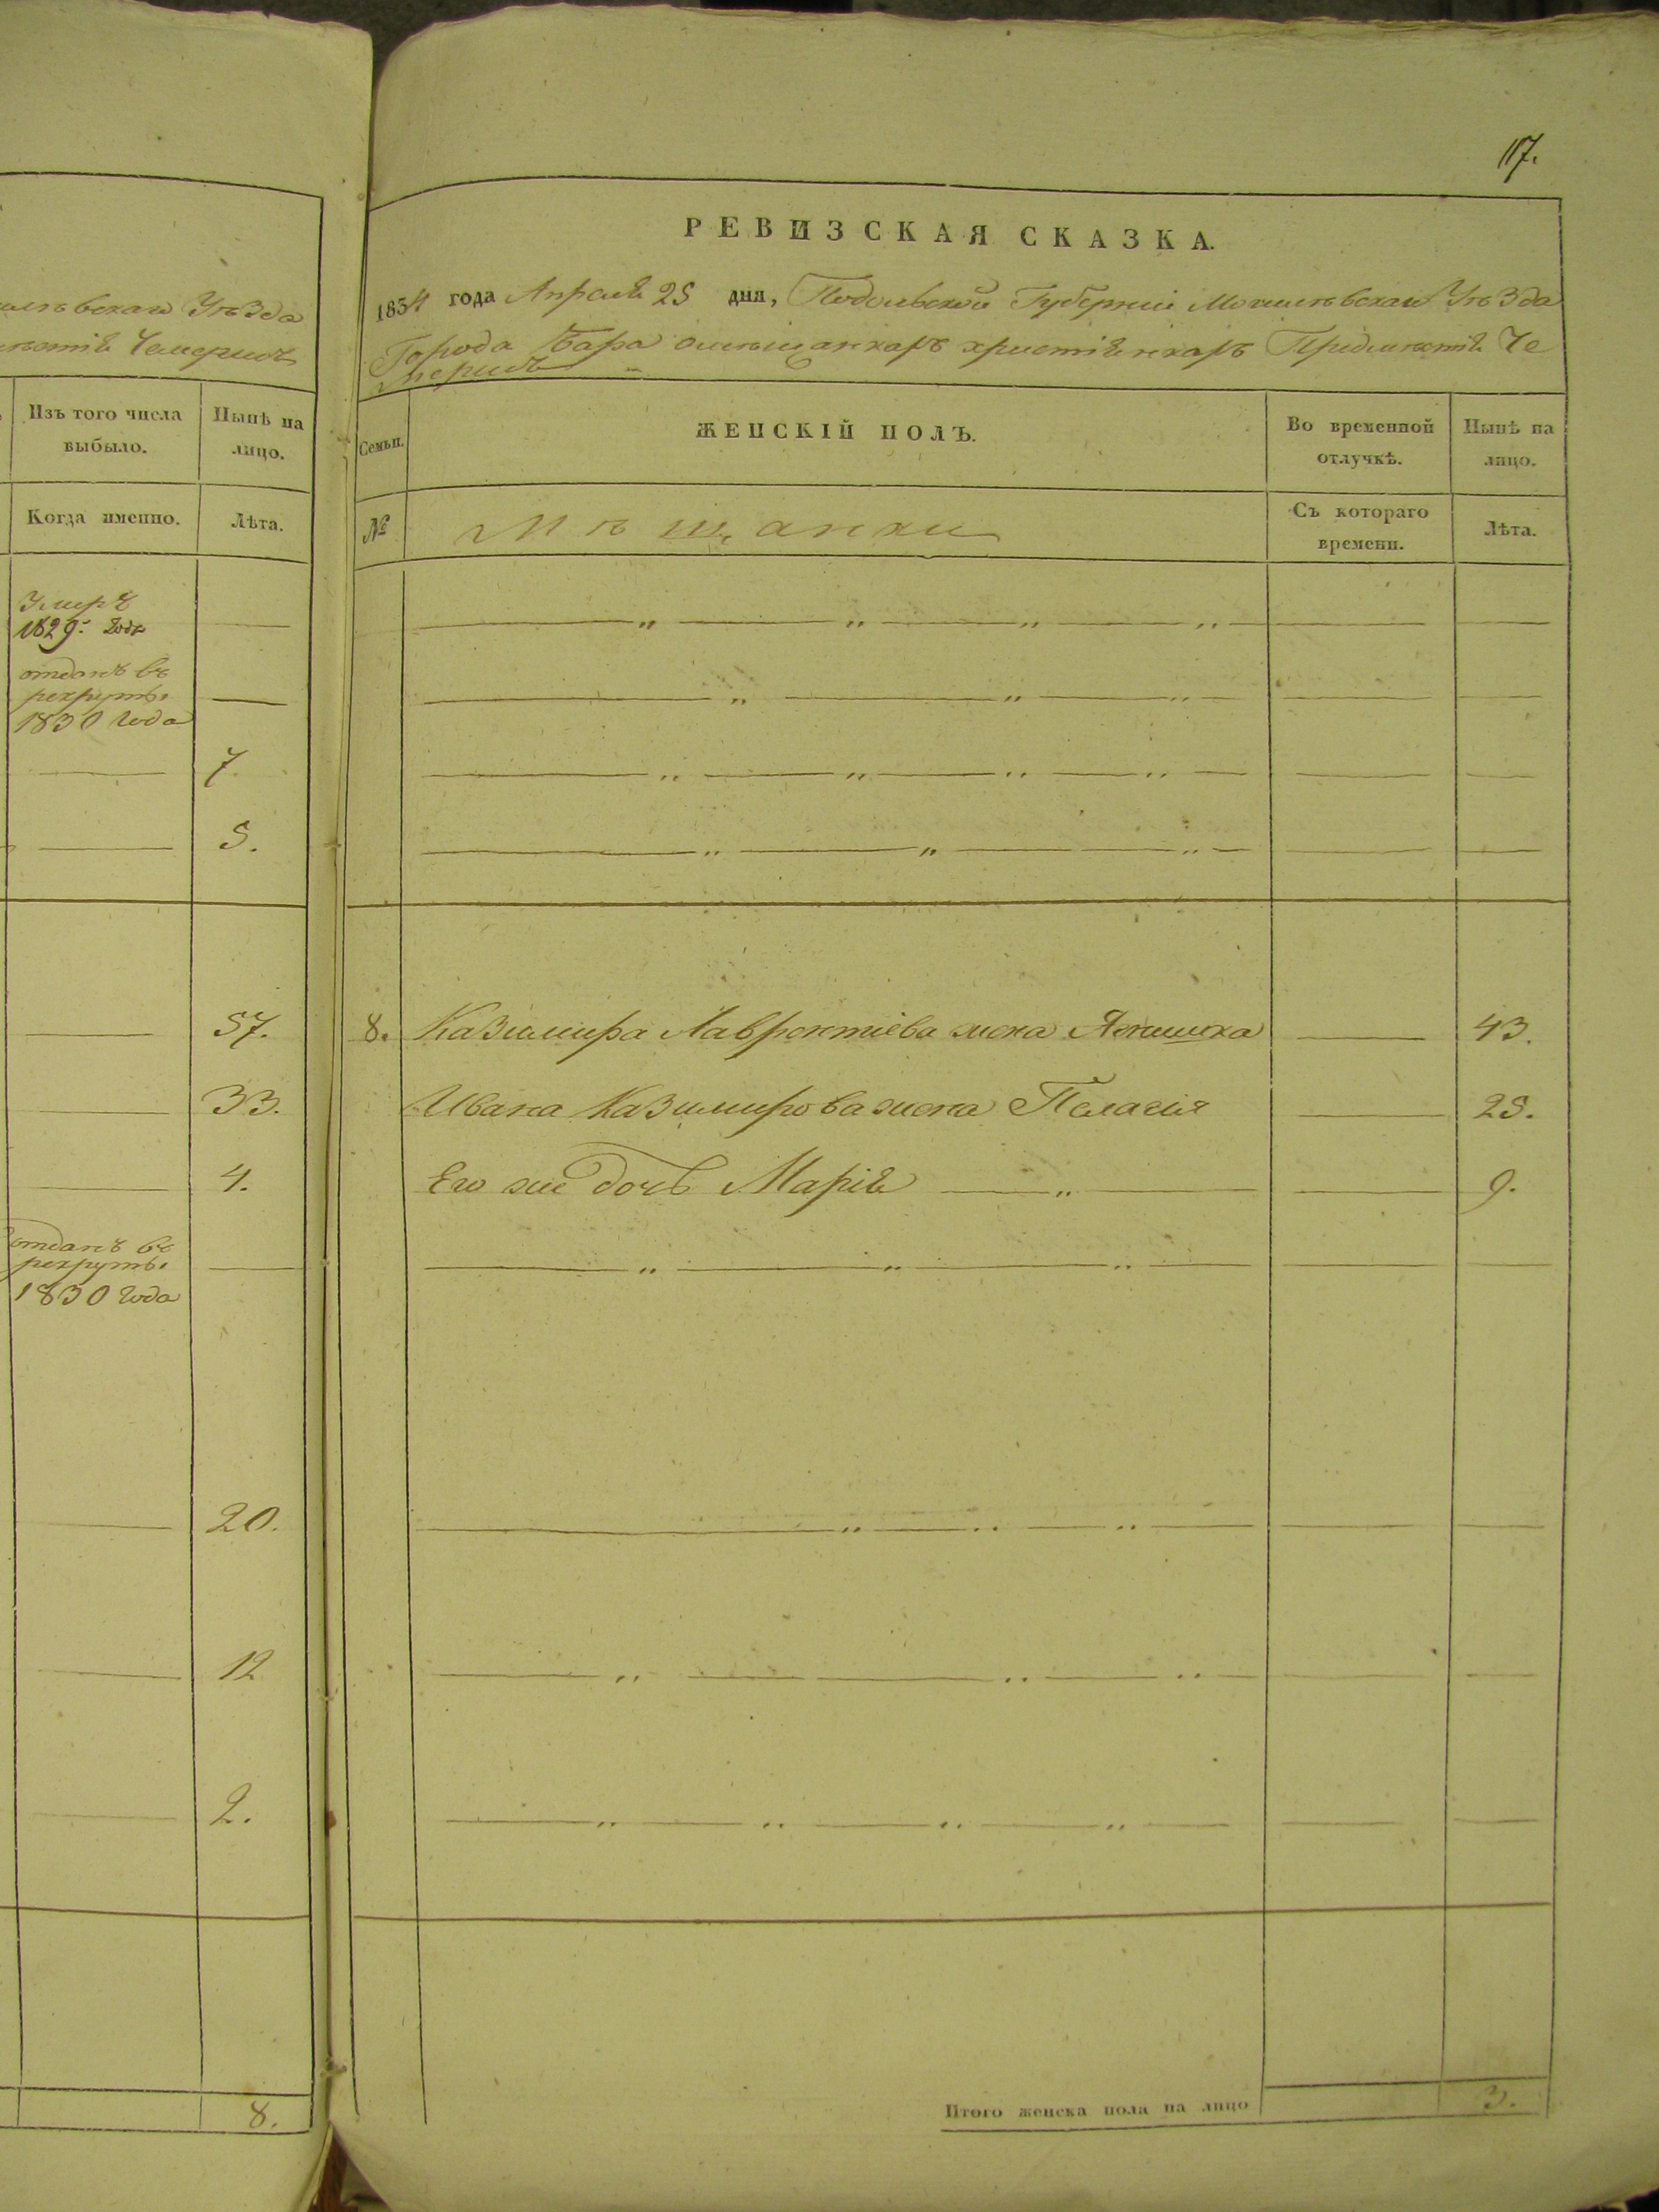 117.
мѣстія Чемерисъ
Изъ того числа выбыло.
Нынѣ на лицо.
Когда именно.
Лѣта.
Умеръ
1829: года
отданъ въ
рекруты
1830 года
7.
5.
57.
33.
4.
отданъ въ
рекруты
1830 года
20.
12
2.
8.
РЕВИЗСКАЯ СКАЗКА.
года Апреля 25 дня, Подольской Губерніи Могилевскаго Уѣзда
Города Бара омѣщанкахъ християнкахъ Предмѣстія Че
мерисъ
Семьи.
ЖЕНСКІЙ ПОЛЪ.
Во временной отлучкѣ.
Нынѣ на лицо.
№
Мѣщанки
Съ котораго времени.
Лѣта.
8. Казимира Лаврентіева жена Ягнишка 43.
Ивана Казимирова жена Пелагия 25.
Его же дочь Марія 9.
Итого женска пола на лицо 3.